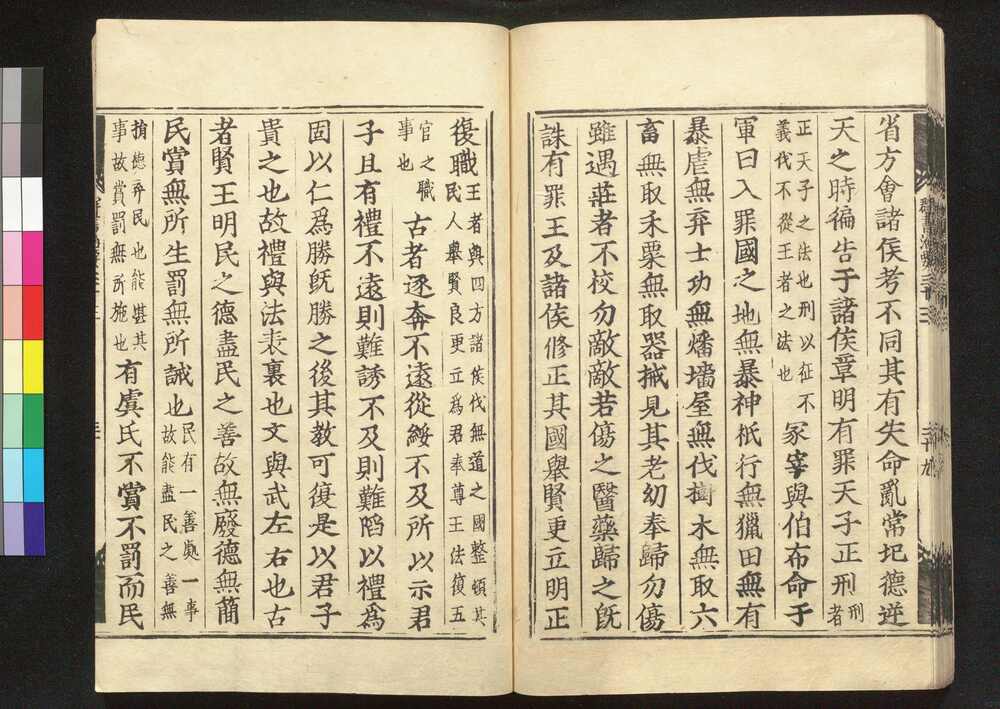 群書治要三十三
二十九
省方會諸侯考不同其有失命亂常圮德逆
天之時徧告于諸侯章明有罪天子正刑刑者
正天子之法也刑以征不義伐不從王者之法也冢宰與伯布命于
軍曰入罪國之地無暴神祇行無獵田無有
暴虐無弃士功無燔墻屋無伐樹木無取六
畜無取禾粟無取器械見其老幼奉歸勿傷
雖遇莊者不挍勿敵敵若傷之醫藥歸之旣
誅有罪王及諸侯修正其國舉賢更立明正
復職王者與四方諸侯伐無道之國整頓其民人舉賢良更立爲君奉尊王法復五
官之職事也古者逐奔不遠從綏不及所以示君
子且有禮不遠則難誘不及則難陷以禮爲
固以仁爲勝旣勝之後其教可復是以君子
貴之也故禮與法表裏也文與武左右也古
者賢王明民之德盡民之善故無廢德無簡
民賞無所生罰無所誡也民有一善處一事故能盡民之善無
捐德弃民也能堪其事故賞罰無所施也有虞氏不賞不罰而民